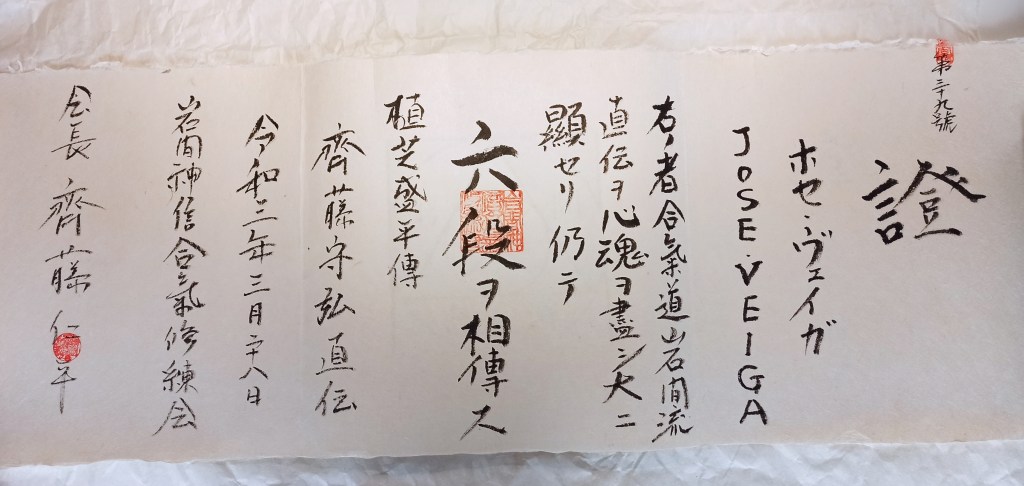 第三十九號
證
ホセ・ヴェイガ
JOSE・VEIGA
右ノ者合氣道岩間流
直伝ヲ心魂ヲ盡シ大ニ
顯セリ仍テ
六段ヲ相傳ス
植芝盛平傳
齊藤守弘直伝
令和二年三月二十八日
岩間神信合氣修練会
会長 齊藤仁平